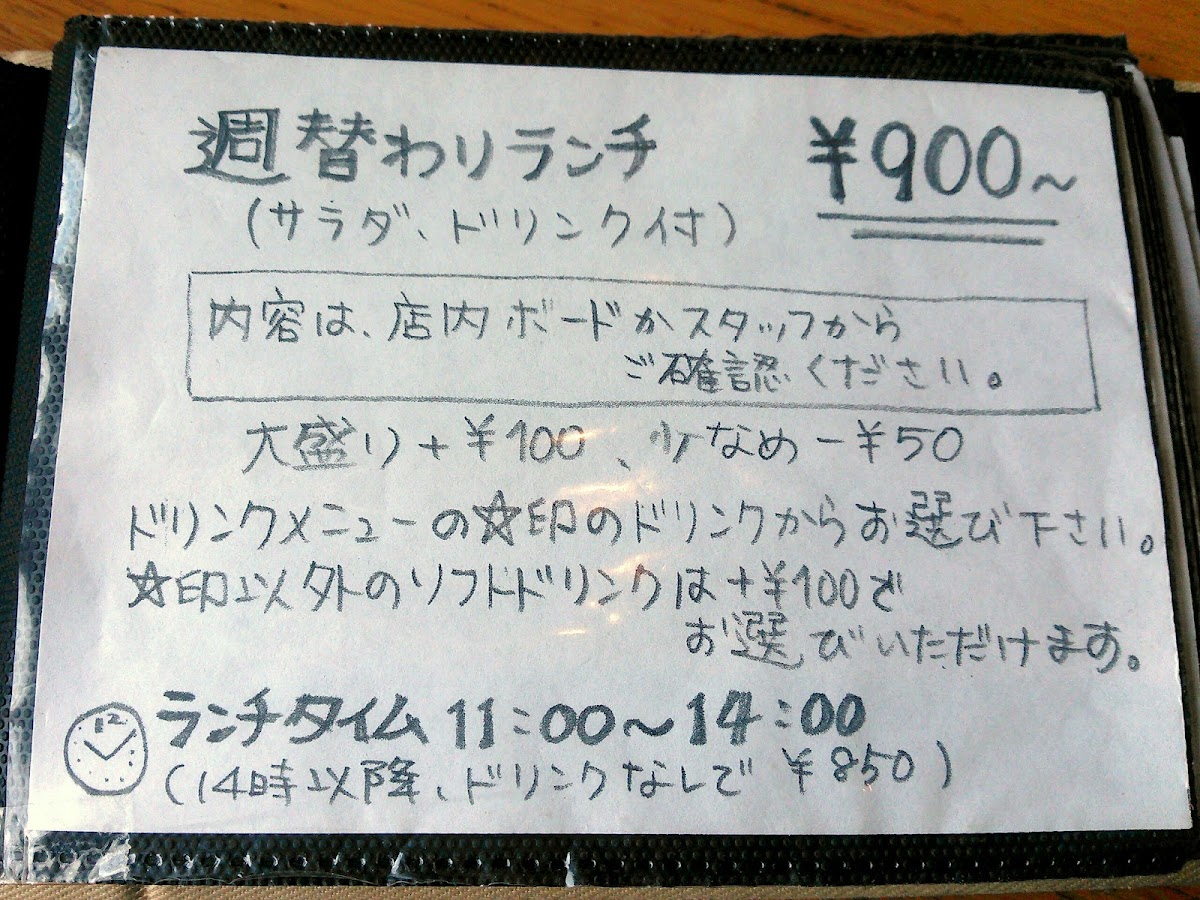 週替わりランチ ¥900~
(サラダ、ドリンク付)
内容は、店内ボードかスタッフから
ご確認ください。
大盛り+¥100、少なめ-¥50
ドリンクメニューの☆印のドリンクからお選び下さい。
☆印以外のソフトドリンクは+¥100で
お選びいただけます。
12
ランチタイム 11:00~14:00
(14時以降、ドリンクなしで ¥850)